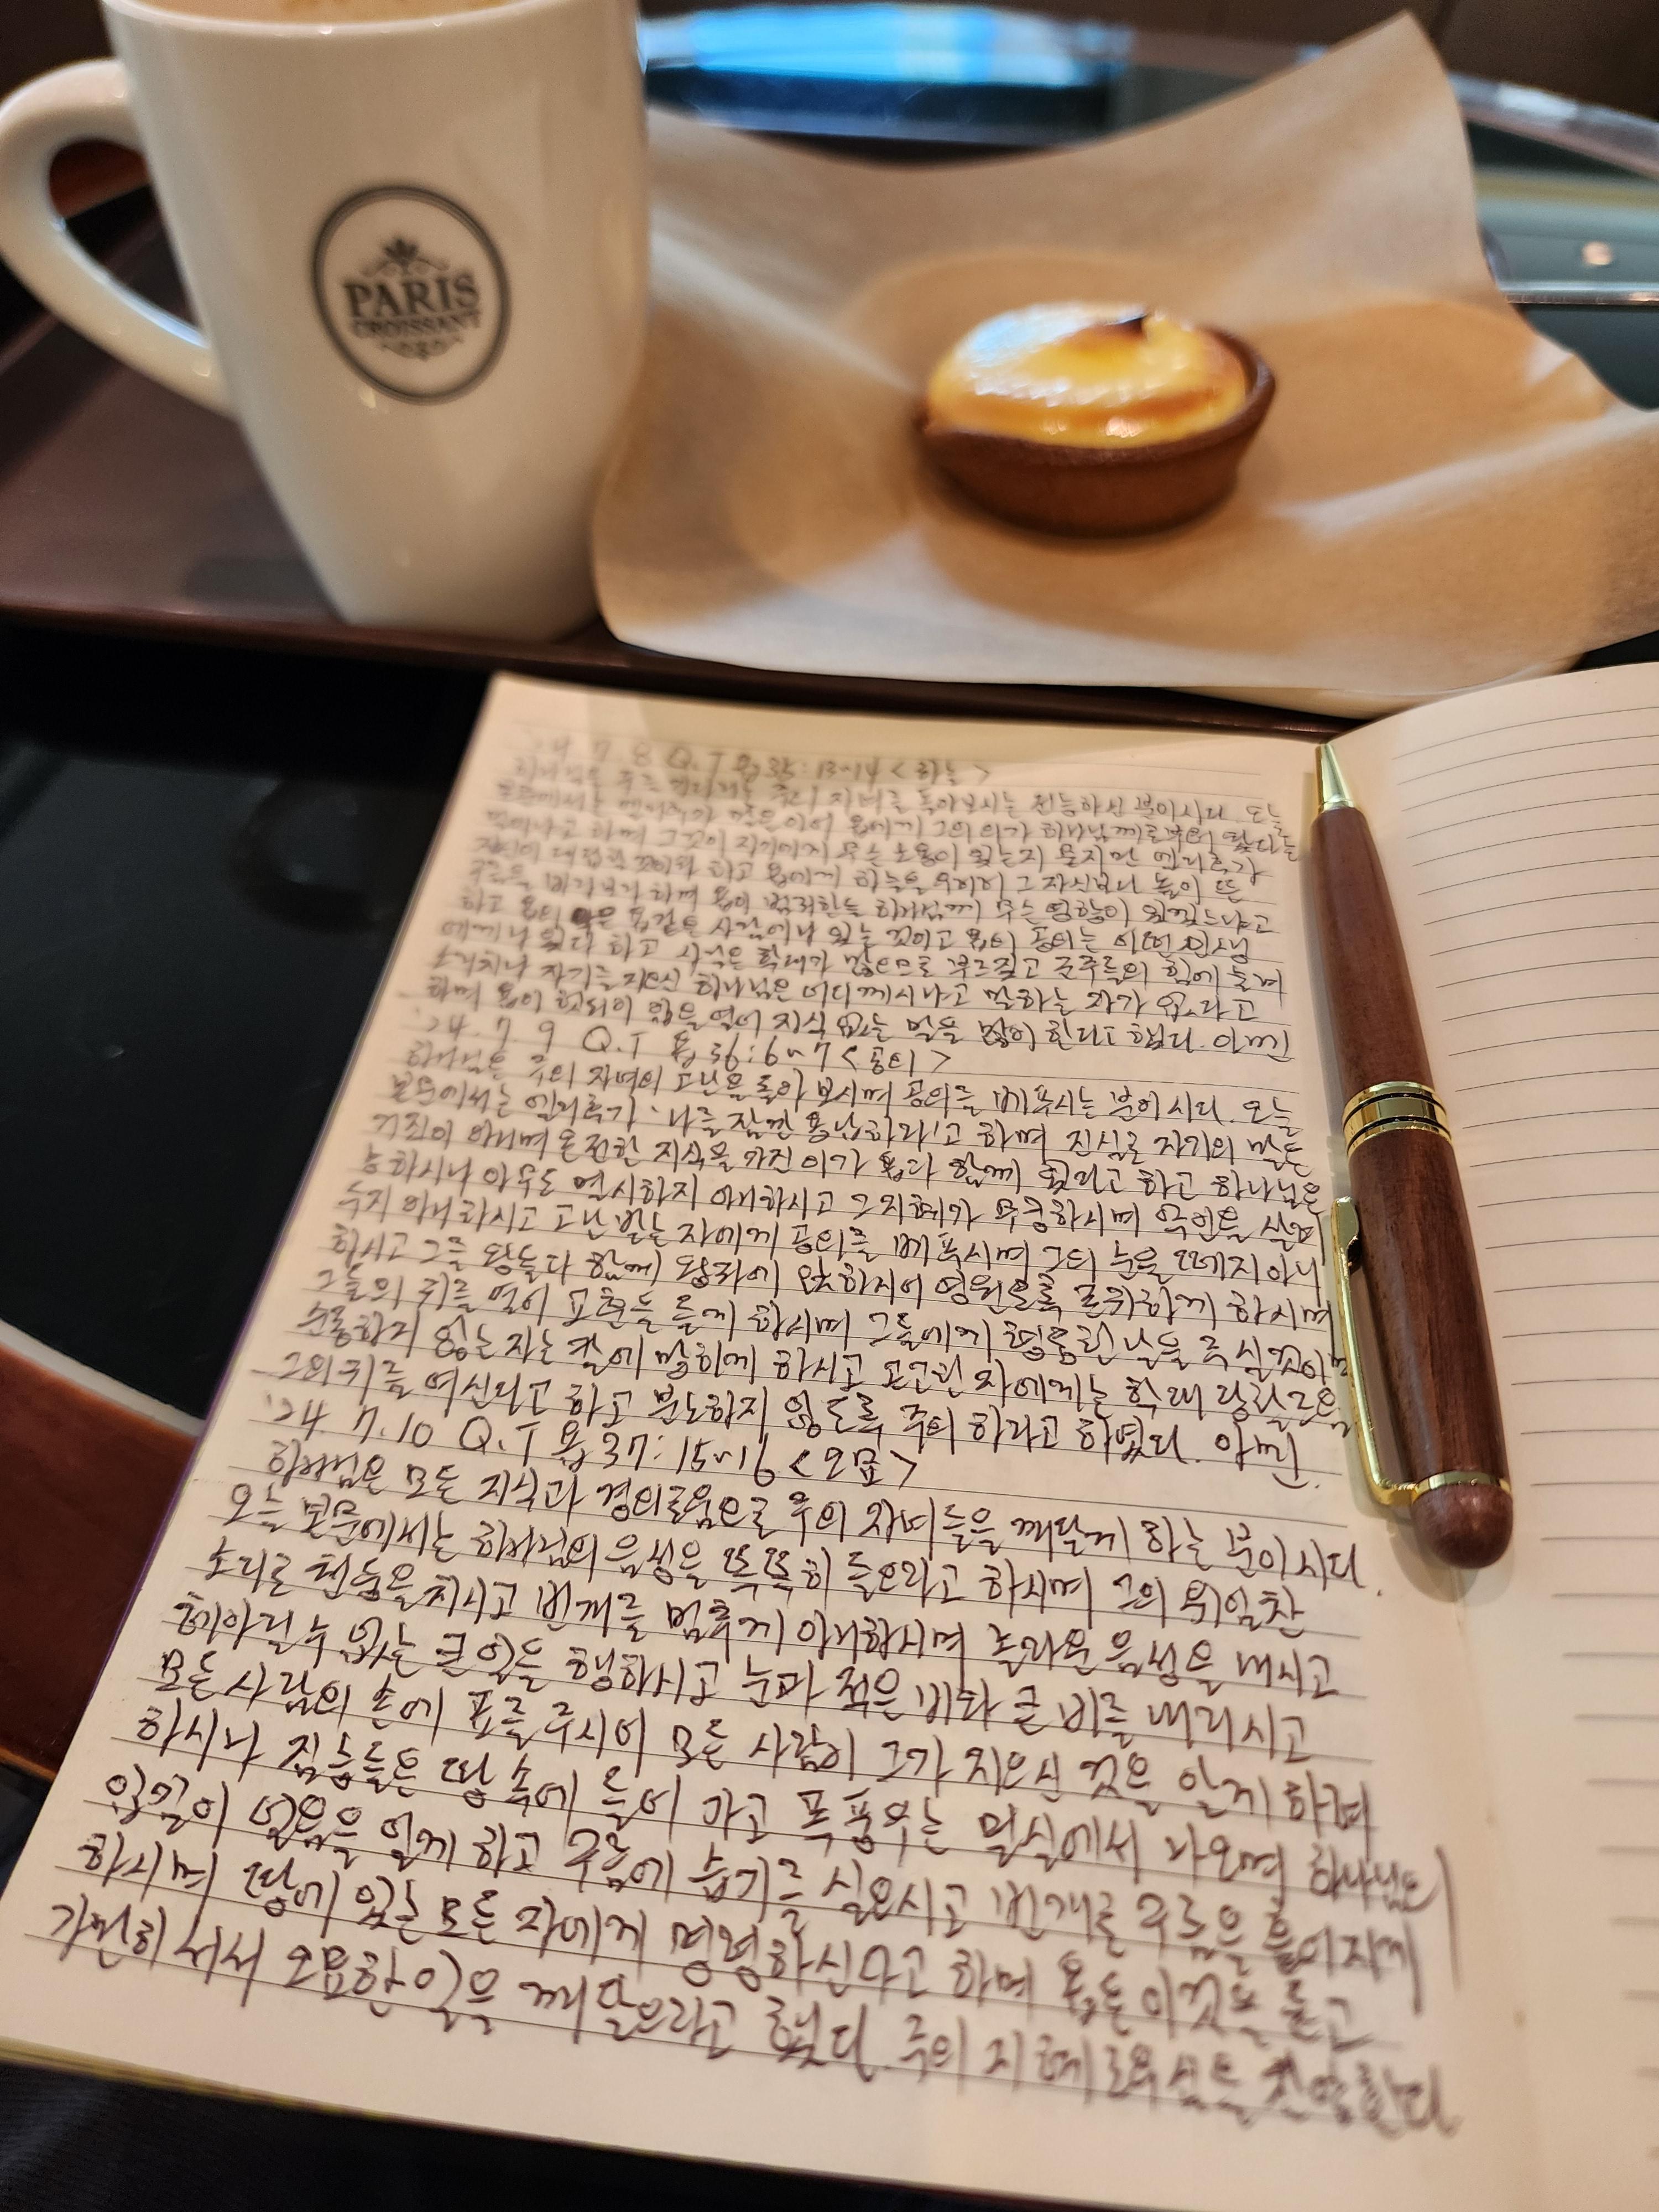 PARIS
CROISSANT
'24. 7. 8 Q.T 욥 35:13~14 <하늘>
하나님은 주의 자녀를 돌아보시는 전능하신 분이시다. 오늘
본문에서는 엘리후가 말은 이어 욥에게 그의 의가 하나님께로부터 왔다는
말이냐고 하며 그것이 자기에게 무슨 소용이 있는지 묻지만 엘리후가
자신이 대답할 것이라 하고 욥에게 하늘을 우러러 그 자신보다 높이 뜬
구름을 바라보라 하며 욥이 범죄한들 하나님께 무슨 영향이 있겠느냐고
하고 욥의 악은 욥같은 사람에나 있는 것이고 욥의 공의는 어떤 인생
에게나 있다 하고 사람은 학대가 많으므로 부르짖고 군주들의 힘에 눌려
소리치나 자기를 지으신 하나님은 어디 계시냐고 말하는 자가 없다고
하며 욥이 헛되이 입을 열어 지식 없는 말을 많이 한다고 했다. 아멘
'24. 7. 9 Q.T 욥 36:6~7 <공의>
하나님은 주의 자녀의 고난을 돌아 보시며 공의를 베푸시는 분이시다. 오늘
본문에서는 엘리후가 '나를 잠깐 용납하라'고 하며 진실로 자기의 말은
거짓이 아니며 온전한 지식을 가진 이가 욥과 함께 있다고 하고 하나님은
능하시나 아무도 멸시하지 아니하시고 그 지혜가 무궁하시며 악인을 살려
두지 아니하시고 고난 받는 자에게 공의를 베푸시며 그의 눈을 떼지 아니
하시고 그를 왕들과 함께 왕좌에 앉히시어 영원토록 존귀하게 하시며
그들의 귀를 열어 교훈을 듣게 하시며 그들에게 형통한 날을 주실 것이며
순종하지 않는 자는 칼에 망하게 하시고 곤고한 자에게는 학대 당할 즈음
그의 귀를 여신다고 하고 분노하지 않도록 주의 하라고 하였다. 아멘.
'24. 7. 10 Q.T 욥 37:15~16 <오묘>
하나님은 모든 지식과 경이로움으로 주의 자녀들을 깨닫게 하는 분이시다.
오늘 본문에서는 하나님의 음성을 똑똑히 들으라고 하시며 그의 위엄찬
소리로 천둥을 치시고 번개를 멈추게 아니하시며 놀라운 음성을 내시고
헤아릴 수 없는 큰 일을 행하시고 눈과 적은 비와 큰 비를 내리시고
모든 사람의 손에 표를 주시어 모든 사람이 그가 지으신 것을 알게 하려
하시나 짐승들은 땅 속에 들어 가고 폭풍우는 밀실에서 나오며 하나님의
입김이 얼음을 얼게 하고 구름에 습기를 실으시고 번개로 구름을 흩어지게
하시며 땅에 있는 모든 자에게 명령하신다고 하며 욥은 이것을 듣고
가만히 서서 오묘한 일을 깨달으라고 했다. 주의 지혜로우심을 찬양한다